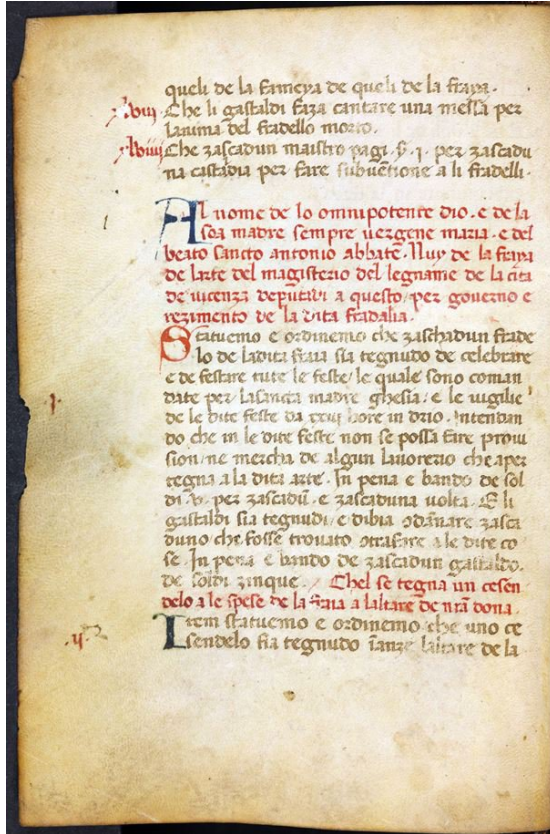 queli de la fameya de queli de la fraya.
xlviii. Che li gastaldi faza cantare una messa per
lanima del fradello morto.
xlviiii Che zascadun maistro pagi. s̄. i. per zascadu
na castadia per fare subuētione a li fradelli.
Al nome de lo omnipotente dio. e de la
soa madre sempre uergene maria. e del
beato sancto antonio abbate. Nuy de la fraya
de larte del magisterio del legname de la cita
de uicenza deputadi a questo/ per governo e
rezimento de la dita fradalia.
Statuemo e ordinemo che zaschadun frade
lo de ladita fraia sia tegnudo de celebrare
e de festare tute le feste/ le quale sono coman
date per lasancta madre ghesia/ e le uigilie
de le dite feste da xxiii hore in drio. Intendan
do che in le dite feste non se possa fare proui
sion/ ne mercha de algun lauorerio che aper
tegna a la dita arte. In pena e bando de sol
di .v. per zascadū. e zascaduna uolta. E li
gastaldi sia tegnudi/ e dibia 9dānare zasca
duno che fosse trouato 9trafare a le dite co
se. In pena e bando de zascadun gastaldo.
de soldi zinque. Chel se tegna un cesen
delo a le spese de la fraia a laltare de nrā dona.
.i.
.ii.
Item statuemo e ordinemo che uno ce
sendelo sia tegnudo īanze laltare de la